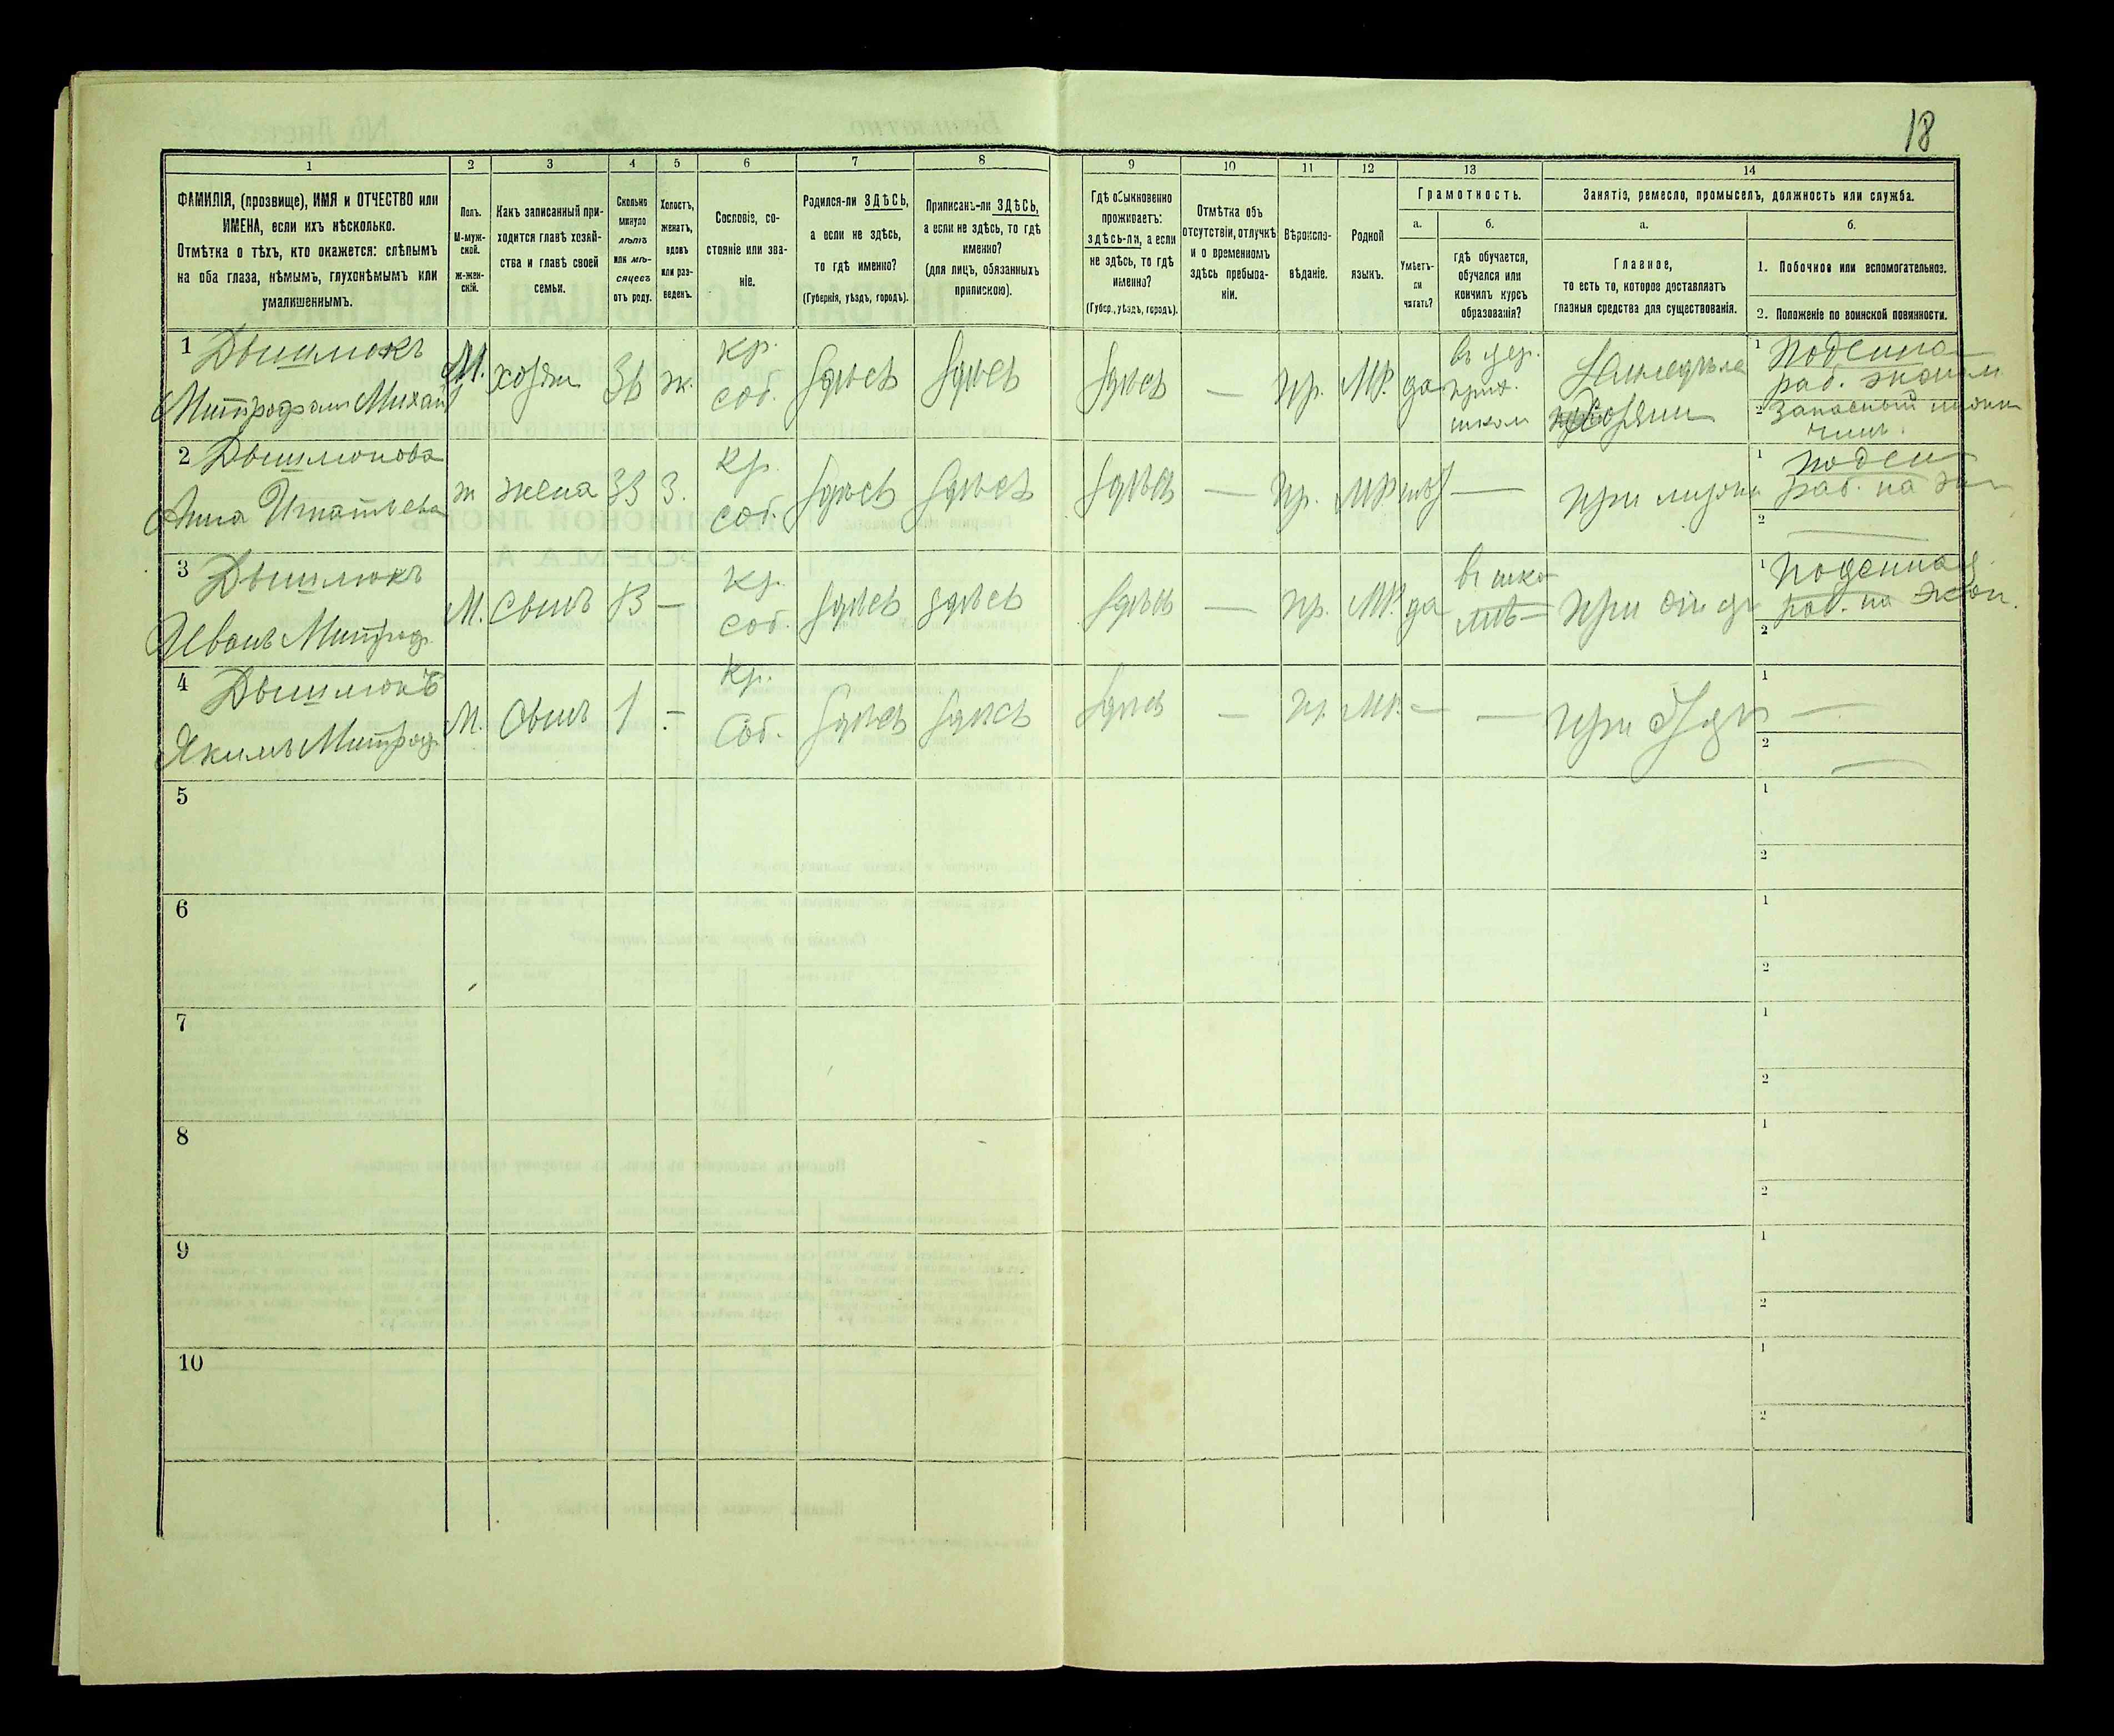 18
1 2 3 4 5 6 7 8 9 10 11 12 13 14
ФАМИЛІЯ, (прозвище), ИМЯ и ОТЧЕСТВО или
ИМЕНА, если ихъ нѣсколько.
Отмѣтка о тѣхъ, кто окажется: слѣпымъ
на оба глаза, нѣмымъ, глухонѣмымъ или
умалишеннымъ.
Полъ.
М-муж-
ской.
ж-жен-
скій.
Какъ записанный при-
ходится главѣ хозяй-
ства и главѣ своей
семьи.
Сколько
минуло
лѣтъ
или мѣ-
сяцевъ
отъ роду.
Холостъ,
женатъ,
вдовъ
или раз-
веденъ.
Сословіе, со-
стояніе или зва-
ніе.
Родился-ли ЗДѢСЬ,
а если не здѣсь,
то гдѣ именно?
(Губернія, уѣздъ, городъ).
Приписанъ-ли ЗДѢСЬ,
а если не здѣсь, то гдѣ
именно?
(для лицъ, обязанныхъ
припискою).
Гдѣ обыкновенно
проживаетъ:
здѣсь-ли, а если
не здѣсь, то гдѣ
именно?
(Губер., уѣздъ, городъ).
Отмѣтка объ
отсутствіи, отлучкѣ
и о временномъ
здѣсь пребыва-
ніи.
Вѣроиспо-
вѣданіе.
Родной
языкъ.
Грамотность.
а.
Умѣетъ-
ли
читать?
б.
гдѣ обучается,
обучался или
кончилъ курсъ
образованія?
Занятіе, ремесло, промыселъ, должность или служба.
а.
Главное,
то есть то, которое доставляетъ
главныя средства для существованія.
б.
1. Побочное или вспомогательное.
2. Положеніе по воинской повинности.
1 Дышлюкъ
Митрофанъ Михай
М. хозяин 36 ж. кр. соб. Здѣсь Здѣсь Здѣсь — пр. МР. да
въ цер.
прих.
школ
Земледѣлец
хозяин
1 Поденная
раб. эконом
2 Запасный нижн
чинъ.
2 Дышлюкова
Анна Игнатьева
ж жена 33 З. кр. соб. Здѣсь Здѣсь Здѣсь — пр. МР. —
при мужѣ
1 поден
раб. на эк
2 —
3 Дышлюкъ
Иванъ Митроф.
М. сынъ 13 — кр. соб. Здѣсь Здѣсь Здѣсь — пр. МР. да
въ шко-
лѣ
при отц
1 Поденная
раб. на экон.
2
4 Дышлюкъ
Якимъ Митроф.
М. Сынъ 1 — кр. Соб. Здѣсь Здѣсь Здѣсь — пр. МР. — —
при
1 —
2 —
5 1
2
6 1
2
7 1
2
8 1
2
9 1
2
10 1
2